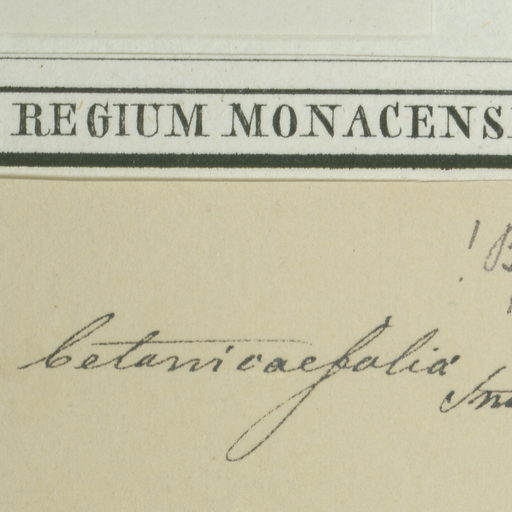 REGIUM MONACENS
! B
betonicaefolia